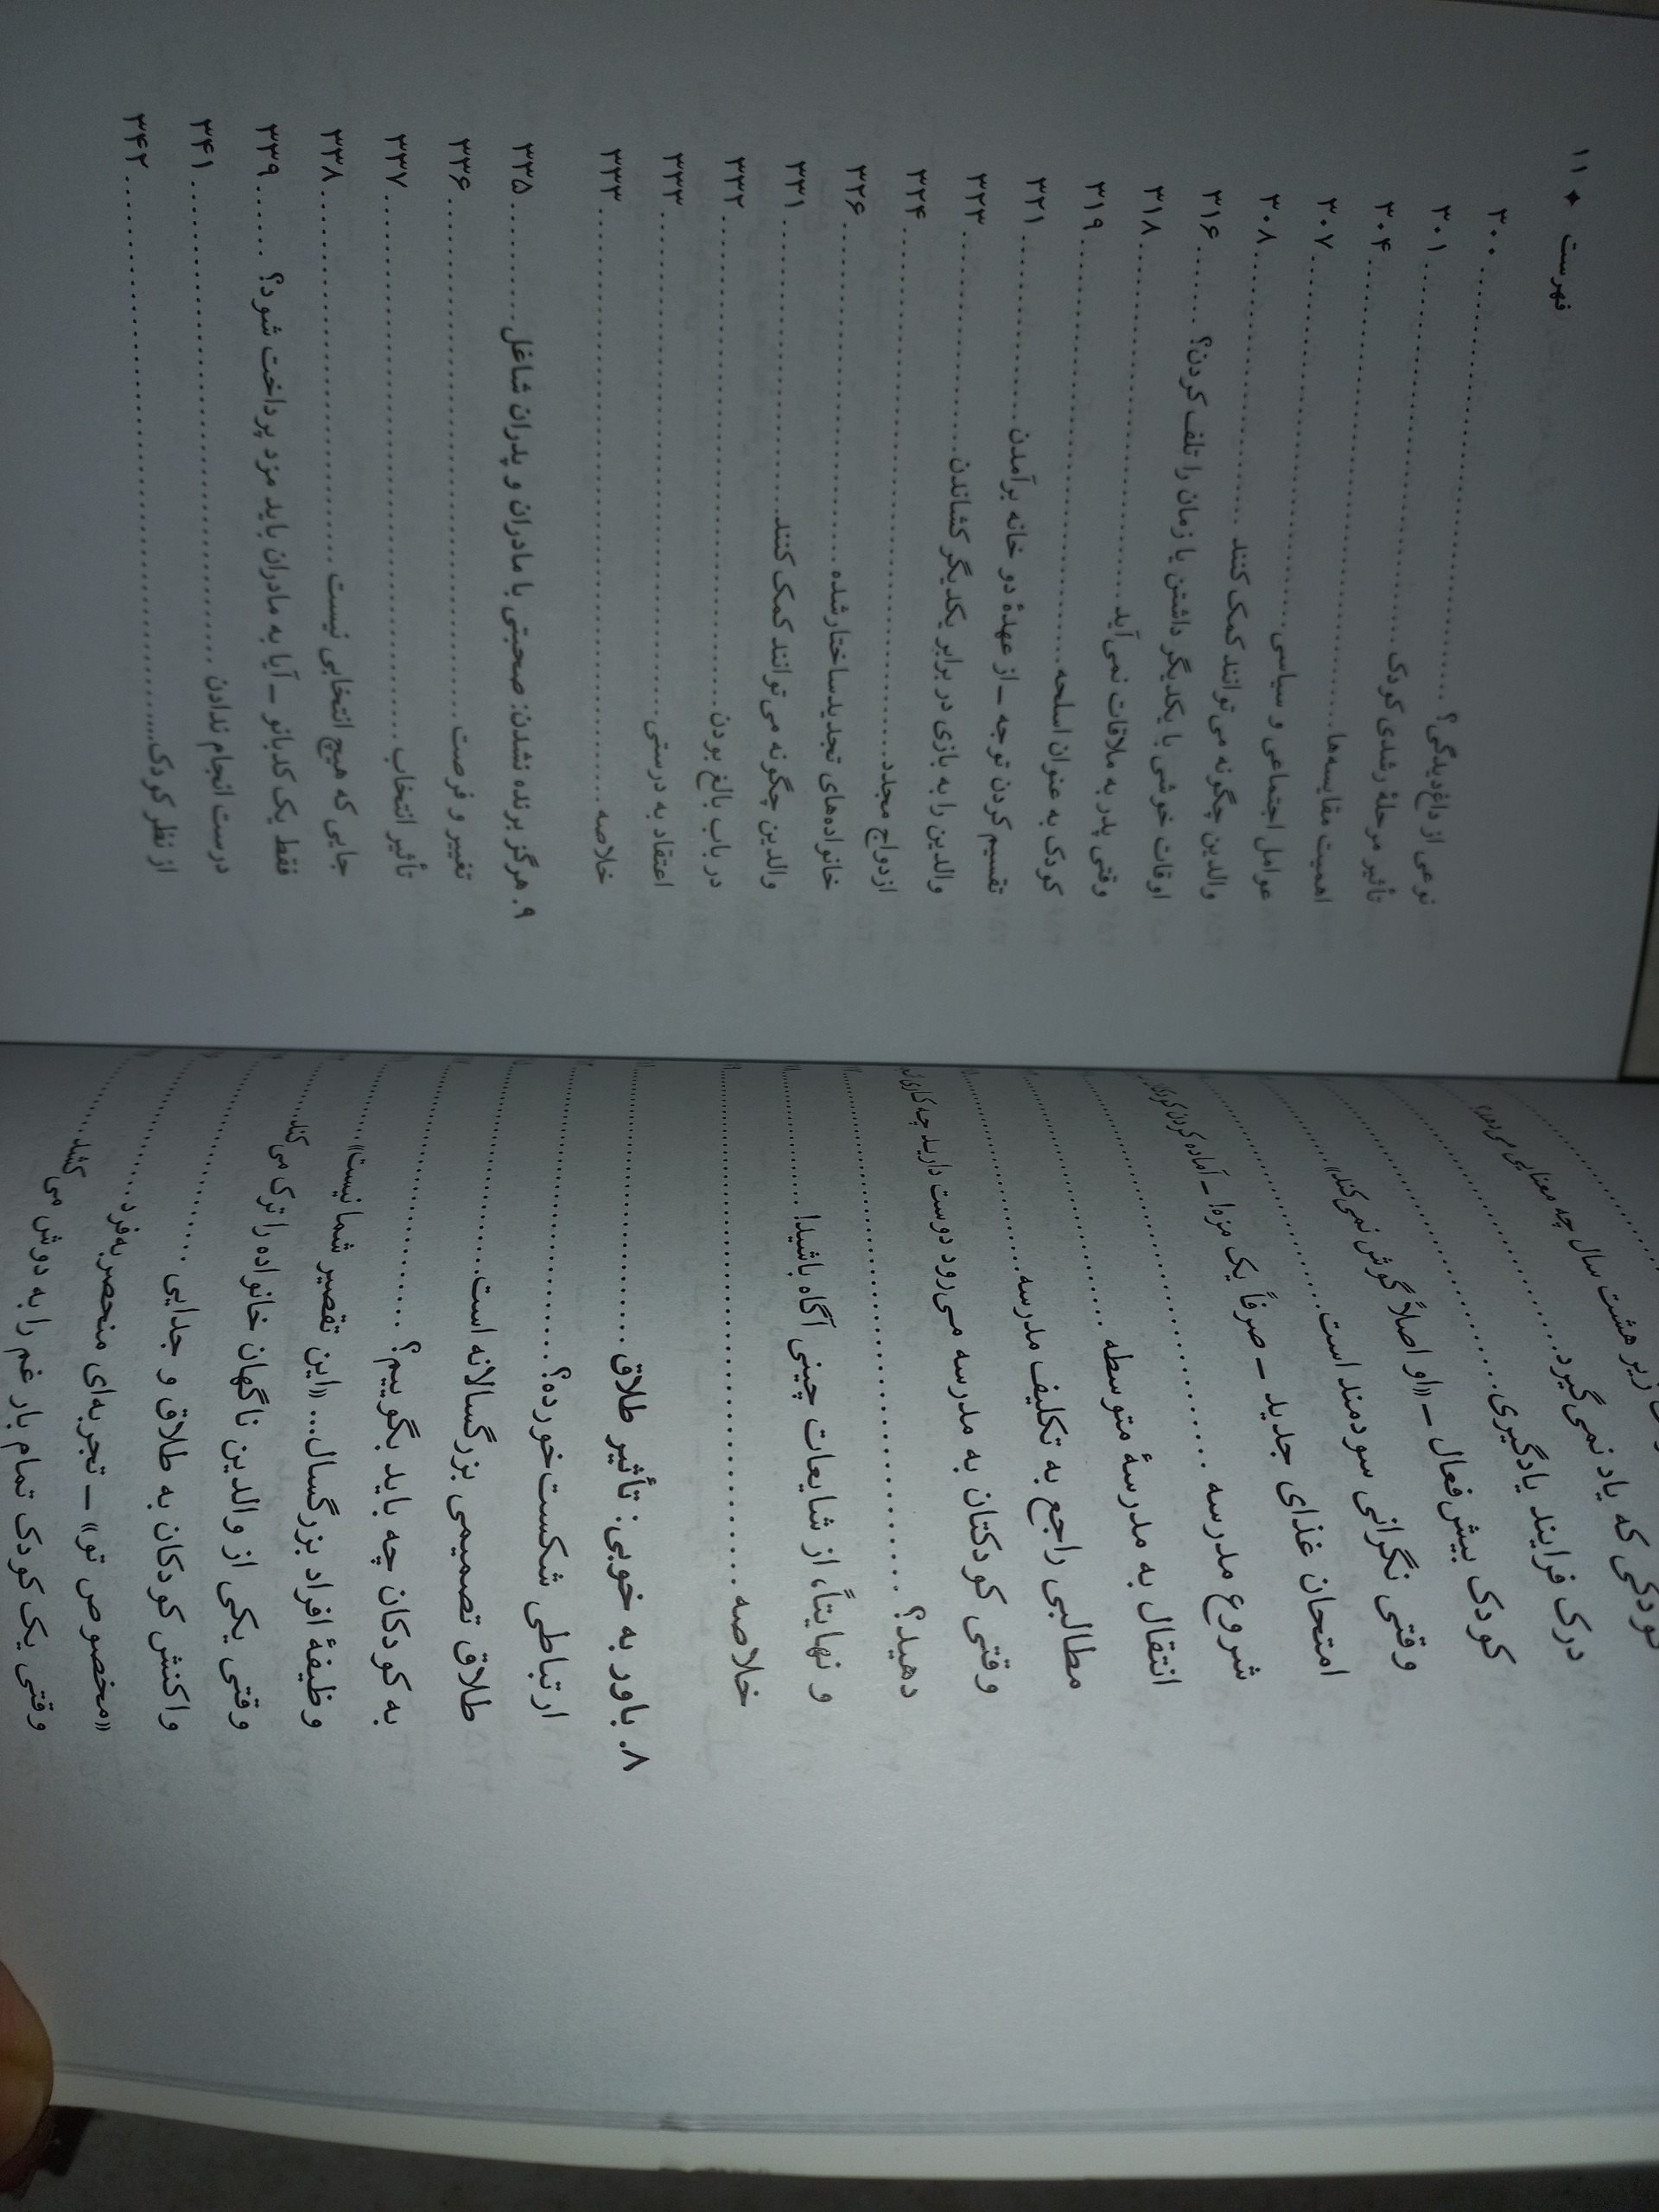 زیر هشت سال چه معنایی می‌دهد؟
کودکی که یاد نمی‌گیرد
درک فرایند یادگیری
کودک بیش‌فعال – «او اصلاً گوش نمی‌کند»
وقتی نگرانی سودمند است
امتحان غذای جدید – صرفاً یک مزه! – آماده کردن
شروع مدرسه
انتقال به مدرسهٔ متوسطه
مطالبی راجع به تکلیف مدرسه
وقتی کودکتان به مدرسه می‌رود دوست دارید چه کاری
دهید؟
و نهایتاً، از شایعات چینی آگاه باشید!
خلاصه
۸. باور به خوبی: تأثیر طلاق
ارتباطی شکست‌خورده؟
طلاق تصمیمی بزرگسالانه است
به کودکان چه باید بگوییم؟
وظیفهٔ افراد بزرگسال... «این تقصیر شما نیست»
وقتی یکی از والدین ناگهان خانواده را ترک می‌کند
واکنش کودکان به طلاق و جدایی
«مخصوص تو» – تجربه‌ای منحصربه‌فرد
وقتی یک کودک تمام بار غم را به دوش می‌کشد
فهرست ✦ ۱۱
نوعی از داغ‌دیدگی؟ ۳۰۰
تأثیر مرحلهٔ رشدی کودک ۳۰۱
اهمیت مقایسه‌ها ۳۰۴
عوامل اجتماعی و سیاسی ۳۰۷
والدین چگونه می‌توانند کمک کنند ۳۰۸
اوقات خوشی با یکدیگر داشتن یا زمان را تلف کردن؟ ۳۱۶
وقتی پدر به ملاقات نمی‌آید ۳۱۸
کودک به عنوان اسلحه ۳۱۹
تقسیم کردن توجه – از عهدهٔ دو خانه برآمدن ۳۲۱
والدین را به بازی در برابر یکدیگر کشاندن ۳۲۳
ازدواج مجدد ۳۲۴
خانواده‌های تجدیدساختارشده ۳۲۶
والدین چگونه می‌توانند کمک کنند ۳۳۱
در باب بالغ بودن ۳۳۲
اعتقاد به درستی ۳۳۳
خلاصه ۳۳۳
۹. هرگز برنده نشدن: صحبتی با مادران و پدران شاغل ۳۳۵
تغییر و فرصت ۳۳۶
تأثیر انتخاب ۳۳۷
جایی که هیچ انتخابی نیست ۳۳۸
فقط یک کدبانو – آیا به مادران باید مزد پرداخت شود؟ ۳۳۹
درست انجام ندادن ۳۴۱
از نظر کودک... ۳۴۲